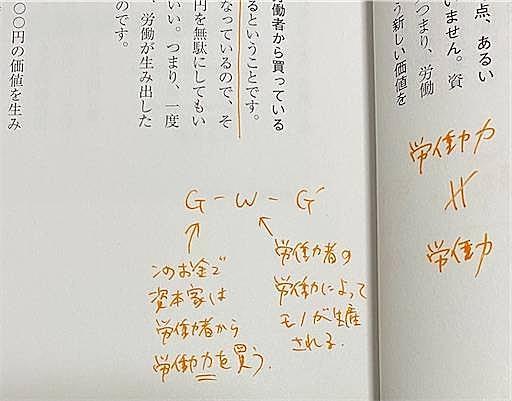 点、あるい
いません。資
つまり、労働
う新しい価値を
労働力
≠
労働力
労働者から買っている
るということです。
なっているので、そ
円を無駄にしてもい
いい。つまり、一度
労働が生み出した
のです。
〇〇円の価値を生み
G－W－G'
このお金で
資本家は
労働者から
労働力を買う.
労働力者の
労働によって
モノが生産
される.